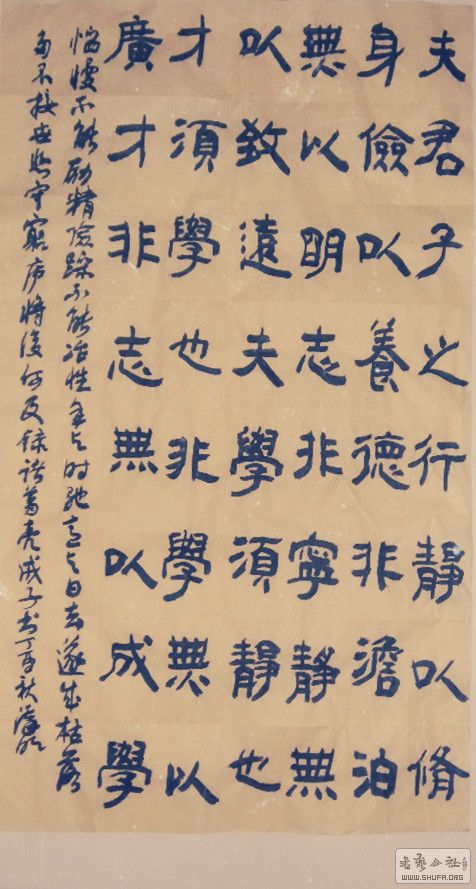 夫君子之行靜以脩
身儉以養德非澹泊
無以明志非寧靜無
以致遠夫學須靜也
才須學也非學無以
廣才非志無以成學
慆慢不能励精險躁不能冶性年与时驰意与日去遂成枯落
多不接世悲守窮庐將復何及録诸葛亮戒子书丁酉秋
書藝公社
WWW.SHUFA.ORG